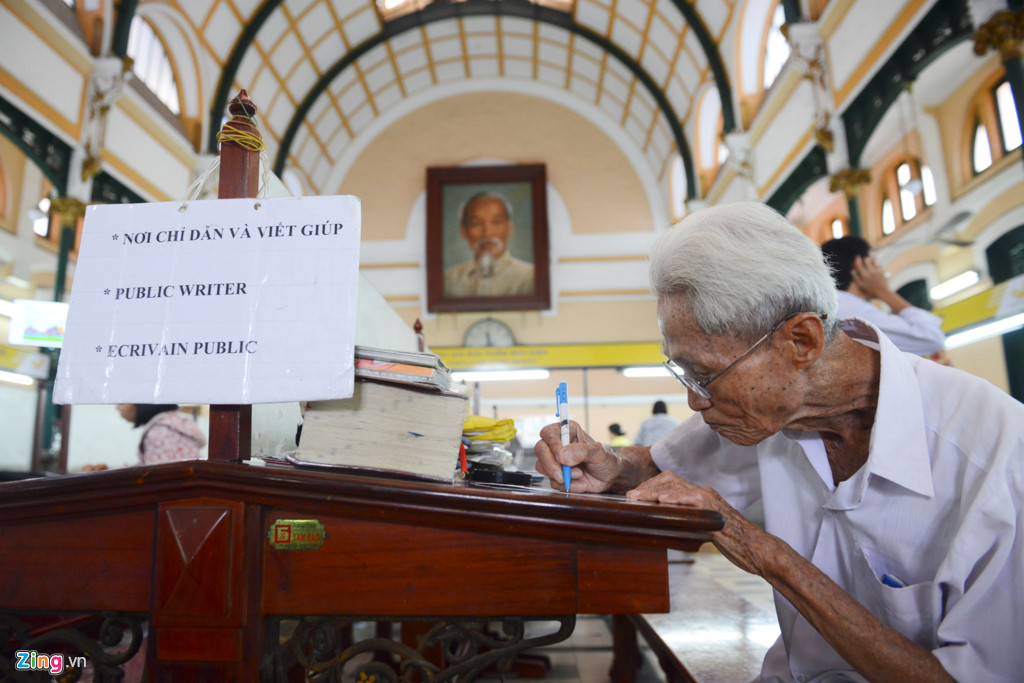 * NƠI CHỈ DẪN VÀ VIẾT GIÚP
* PUBLIC WRITER
* ECRIVAIN PUBLIC
Zing.vn